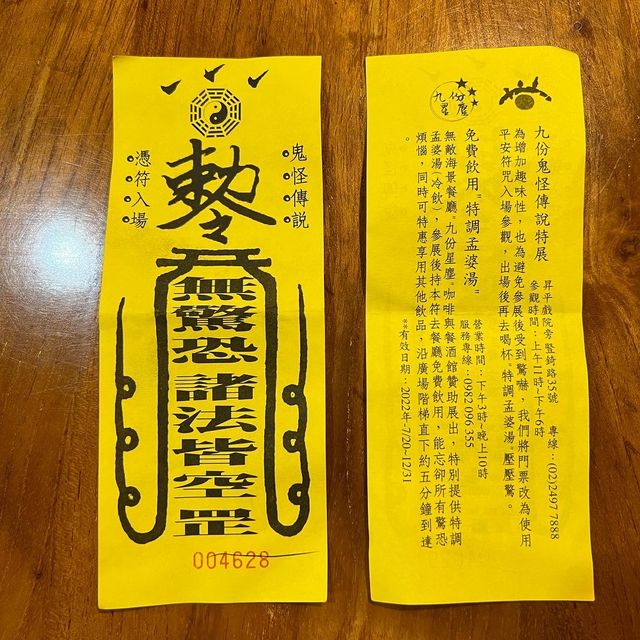 鬼怪傳說
憑符入場
敕令
無驚恐諸法皆空罡
004628
九份星塵
九份鬼怪傳說特展
昇平戲院旁豎錡路35號 專線：(02)2497 7888
參觀時間：上午11時~下午6時
為增加趣味性，也為避免參展後受到驚嚇，我們將門票改為使用
平安符咒入場參觀，出場後再去喝杯"特調孟婆湯"壓壓驚。
免費飲用"特調孟婆湯"
營業時間：下午3時~晚上10時
服務專線：0982 096 355
無敵海景餐廳"九份星塵"咖啡與餐酒館贊助展出，特別提供特調
孟婆湯(冷飲)，參展後持本符去餐廳免費飲用，能忘卻所有驚恐
煩惱，同時可特惠享用其他飲品，沿廣場階梯直下約五分鐘到達
。
**有效日期：2022年-7/20~12/31